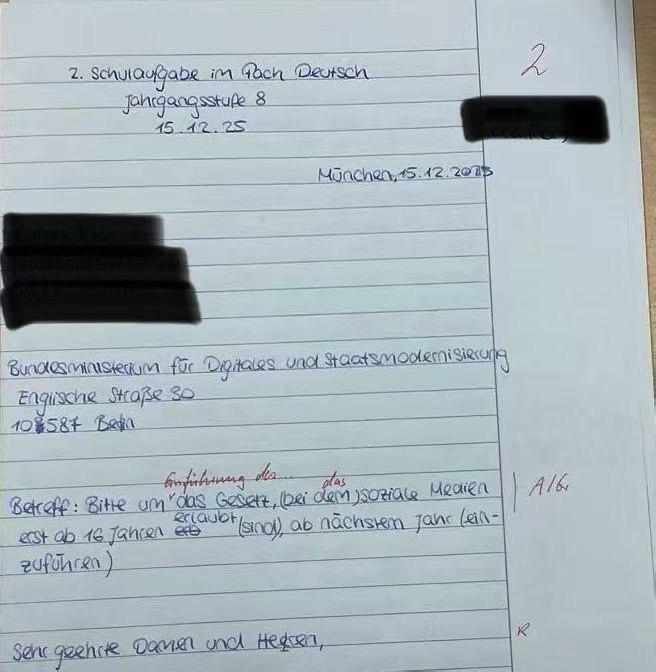 2. Schulaufgabe im Fach Deutsch
2
Jahrgangsstufe 8
15.12.25
München, 15.12.2025
Bundesministerium für Digitales und Staatsmodernisierung
Englische Straße 30
10587 Berlin
Einführung des... das
Betreff: Bitte um das Gesetz, (bei dem) soziale Medien
A/G.
erlaubt
erst ab 16 Jahren (sind), ab nächstem Jahr (ein-
zuführen)
Sehr geehrte Damen und Herren,
R